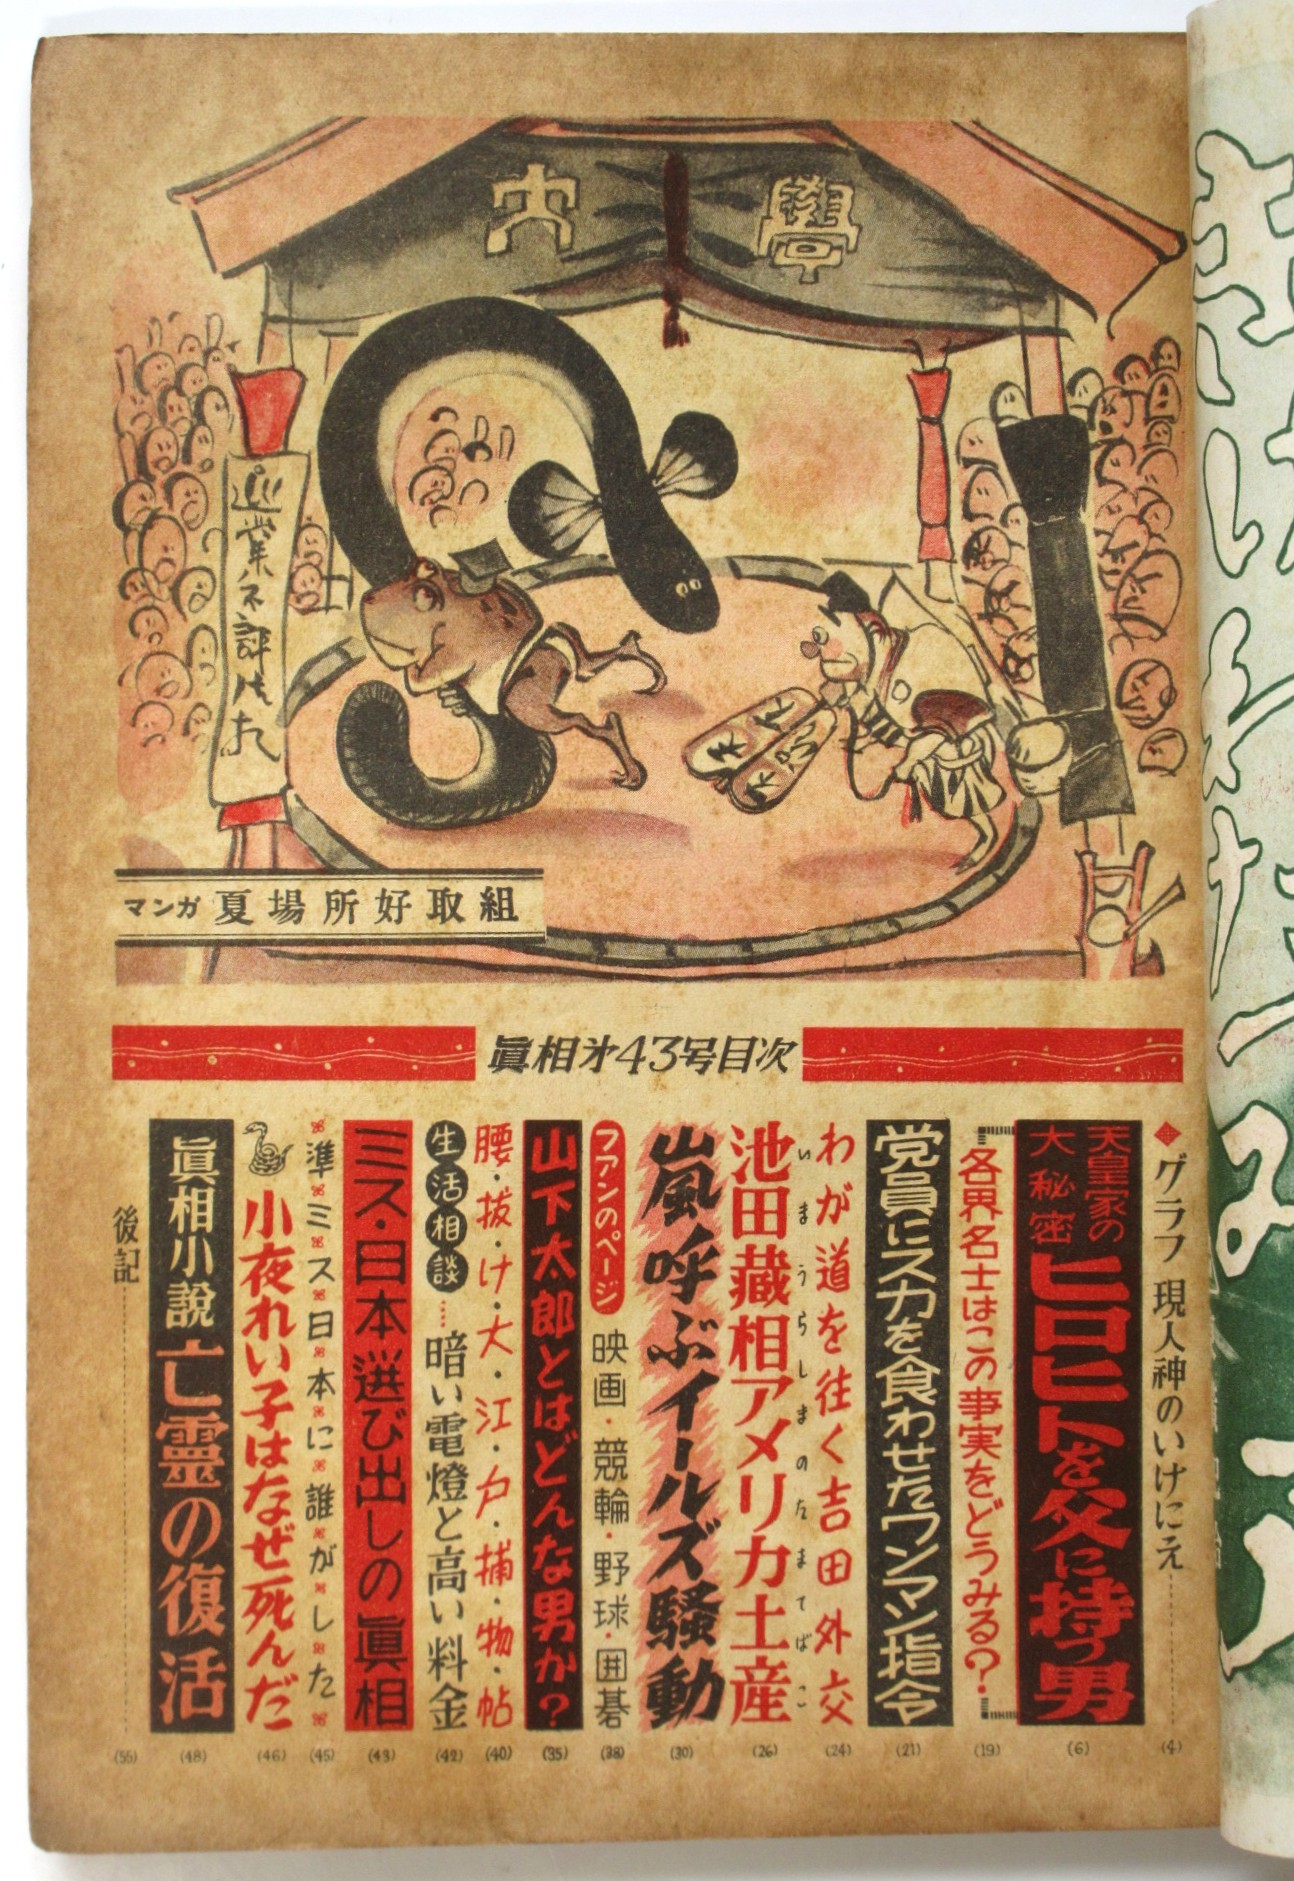 大學
マンガ 夏場所好取組
眞相第43号目次
◆グラフ 現人神のいけにえ (4)
天皇家の大秘密 ヒロヒトを父に持つ男 (6)
各界名士はこの事実をどうみる? (19)
党員にスカを食わせたワンマン指令 (21)
わが道を往く吉田外交 (24)
池田蔵相アメリカ土産 (26)
いまうらしまのたまてばこ
嵐呼ぶイールズ騒動 (30)
ファンのページ 映画・競輪・野球・囲碁 (38)
山下太郎とはどんな男か? (35)
腰・抜・け・大・江・戸・捕・物・帖 (40)
生活相談……暗い電燈と高い料金 (42)
ミス・日本選び出しの眞相 (43)
準ミス日本に誰がした (45)
小夜れい子はなぜ死んだ (46)
眞相小説 亡霊の復活 (48)
後記 (55)